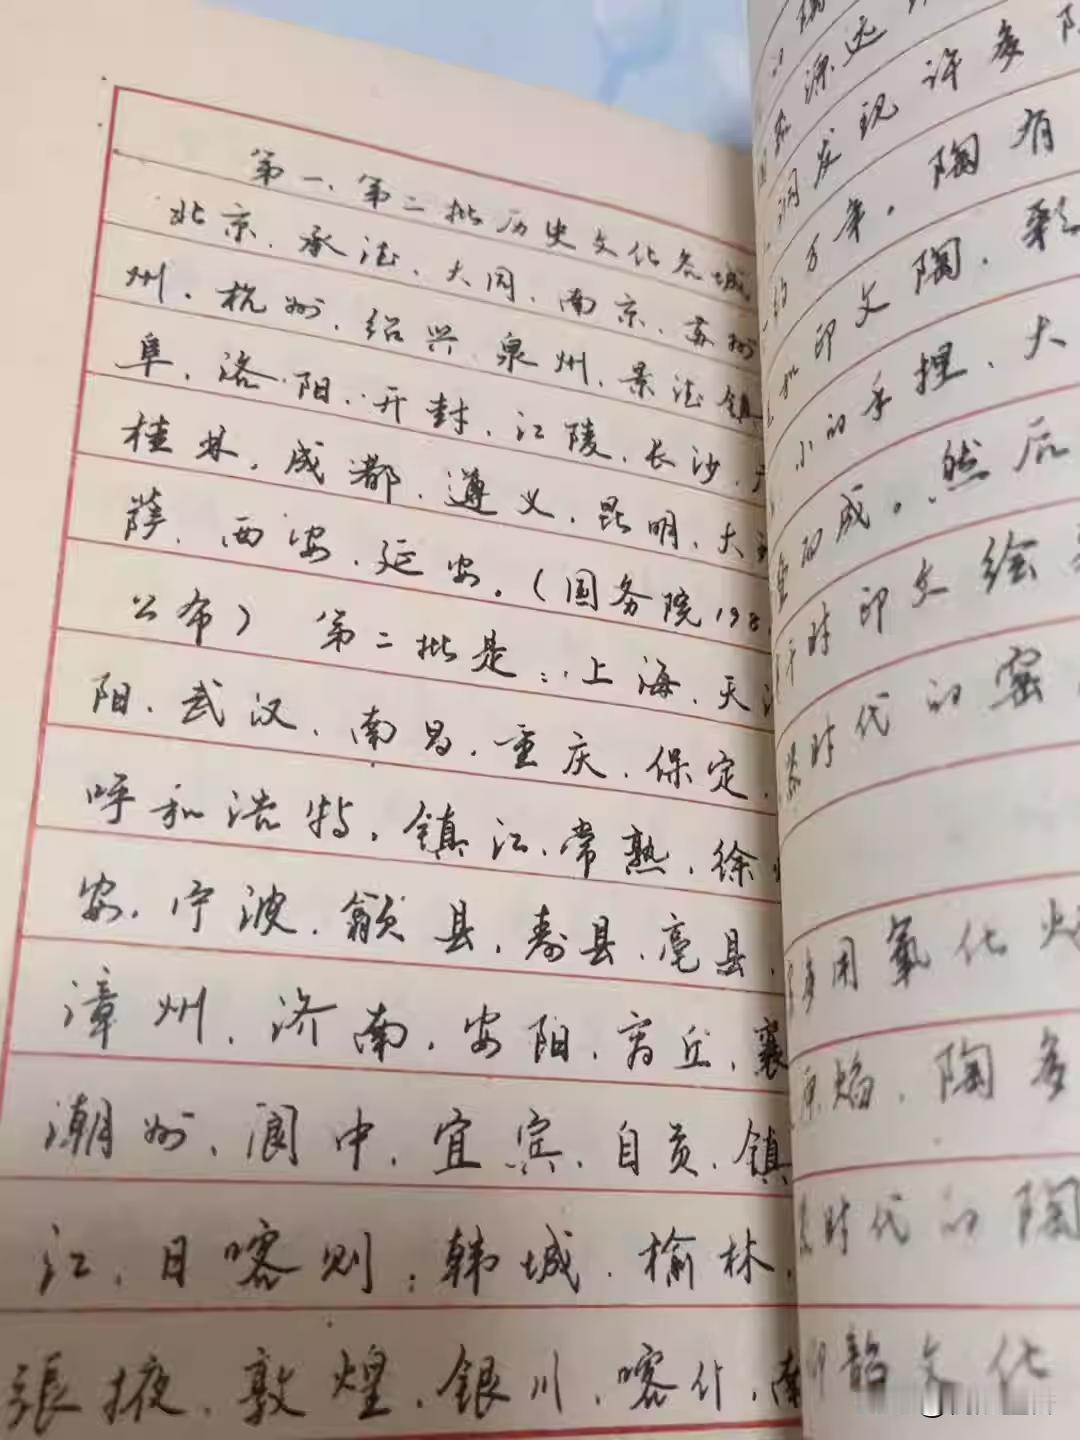 第一、第二批历史文化名城
北京、承德、大同、南京、苏州
州、杭州、绍兴、泉州、景德镇
阜、洛阳、开封、江陵、长沙、
桂林、成都、遵义、昆明、大
萨、西安、延安。(国务院198
公布) 第二批是:上海、天
阳、武汉、南昌、重庆、保定、
呼和浩特、镇江、常熟、徐
安、宁波、歙县、寿县、亳县、
漳州、济南、安阳、商丘、襄
潮州、阆中、宜宾、自贡、镇
江、日喀则、韩城、榆林、
張掖、敦煌、银川、喀什、南
源远
洞发现许多陶
约万年。陶有
和印文陶、彩
小的手捏、大
而成。然后
时印文绘
时代的窑
用氧化
原焰、陶多
时代的陶
印韶文化